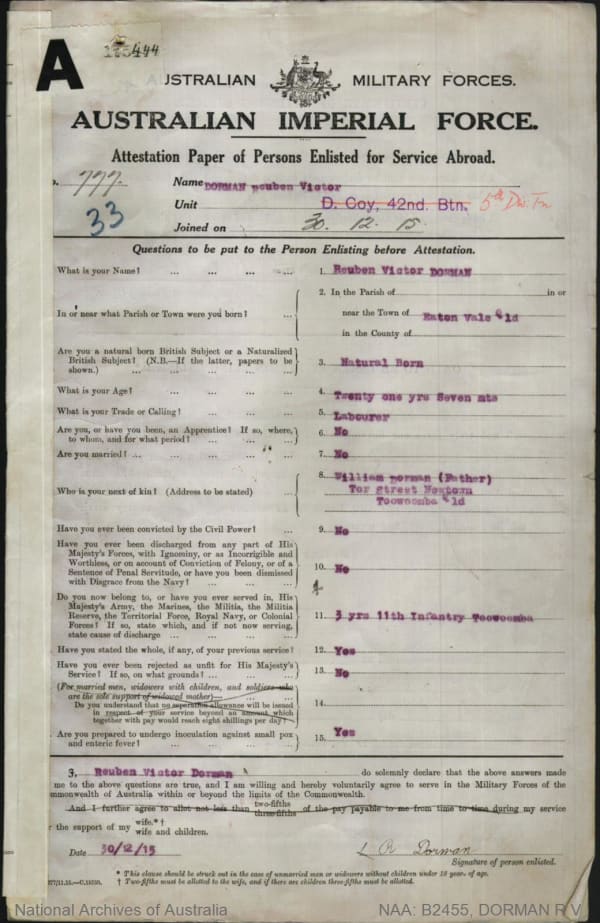 A
444
AUSTRALIAN MILITARY FORCES.
AUSTRALIAN IMPERIAL FORCE.
Attestation Paper of Persons Enlisted for Service Abroad.
o. 777. Name DORMAN Reuben Victor
33 Unit D. Coy, 42nd. Btn. 5th Div. Tn
Joined on 30. 12. 15.
Questions to be put to the Person Enlisting before Attestation.
What is your Name? ... ... ... ... 1. Reuben Victor DORMAN
In or near what Parish or Town were you born? ... 2. In the Parish of in or
near the Town of Eaton Vale Qld
in the County of
Are you a natural born British Subject or a Naturalized
British Subject? (N.B.—If the latter, papers to be
shown.) ... ... ... ... ... 3. Natural Born
What is your Age? ... ... ... ... 4. Twenty one yrs Seven mts
What is your Trade or Calling? ... ... ... 5. Labourer
Are you, or have you been, an Apprentice? If so, where,
to whom, and for what period? ... ... ... 6. No
Are you married? ... ... ... ... 7. No
Who is your next of kin? (Address to be stated) ... 8. William Dorman (Father)
Tor Street Newtown
Toowoomba Qld
Have you ever been convicted by the Civil Power? ... 9. No
Have you ever been discharged from any part of His
Majesty's Forces, with Ignominy, or as Incorrigible and
Worthless, or on account of Conviction of Felony, or of a
Sentence of Penal Servitude, or have you been dismissed
with Disgrace from the Navy? ... ... ... 10. No
Do you now belong to, or have you ever served in, His
Majesty's Army, the Marines, the Militia, the Militia
Reserve, the Territorial Force, Royal Navy, or Colonial
Forces? If so, state which, and if not now serving,
state cause of discharge ... ... ... ... 11. 3 yrs 11th Infantry Toowoomba
Have you stated the whole, if any, of your previous service? 12. Yes
Have you ever been rejected as unfit for His Majesty's
Service? If so, on what grounds? ... ... ... 13. No
(For married men, widowers with children, and soldiers who
are the sole support of widowed mother)—
Do you understand that no separation allowance will be issued
in respect of your service beyond an amount which
together with pay would reach eight shillings per day? 14.
Are you prepared to undergo inoculation against small pox
and enteric fever? ... ... ... ... 15. Yes
I, Reuben Victor Dorman do solemnly declare that the above answers made
me to the above questions are true, and I am willing and hereby voluntarily agree to serve in the Military Forces of the
mmonwealth of Australia within or beyond the limits of the Commonwealth.
And I further agree to allot not less than two-fifths three-fifths of the pay payable to me from time to time during my service
r the support of my wife.*† wife and children.
Date 30/12/15 Dorman
Signature of person enlisted.
* This clause should be struck out in the case of unmarried men or widowers without children under 18 years of age.
† Two-fifths must be allotted to the wife, and if there are children three-fifths must be allotted.
National Archives of Australia NAA: B2455, DORMAN R V